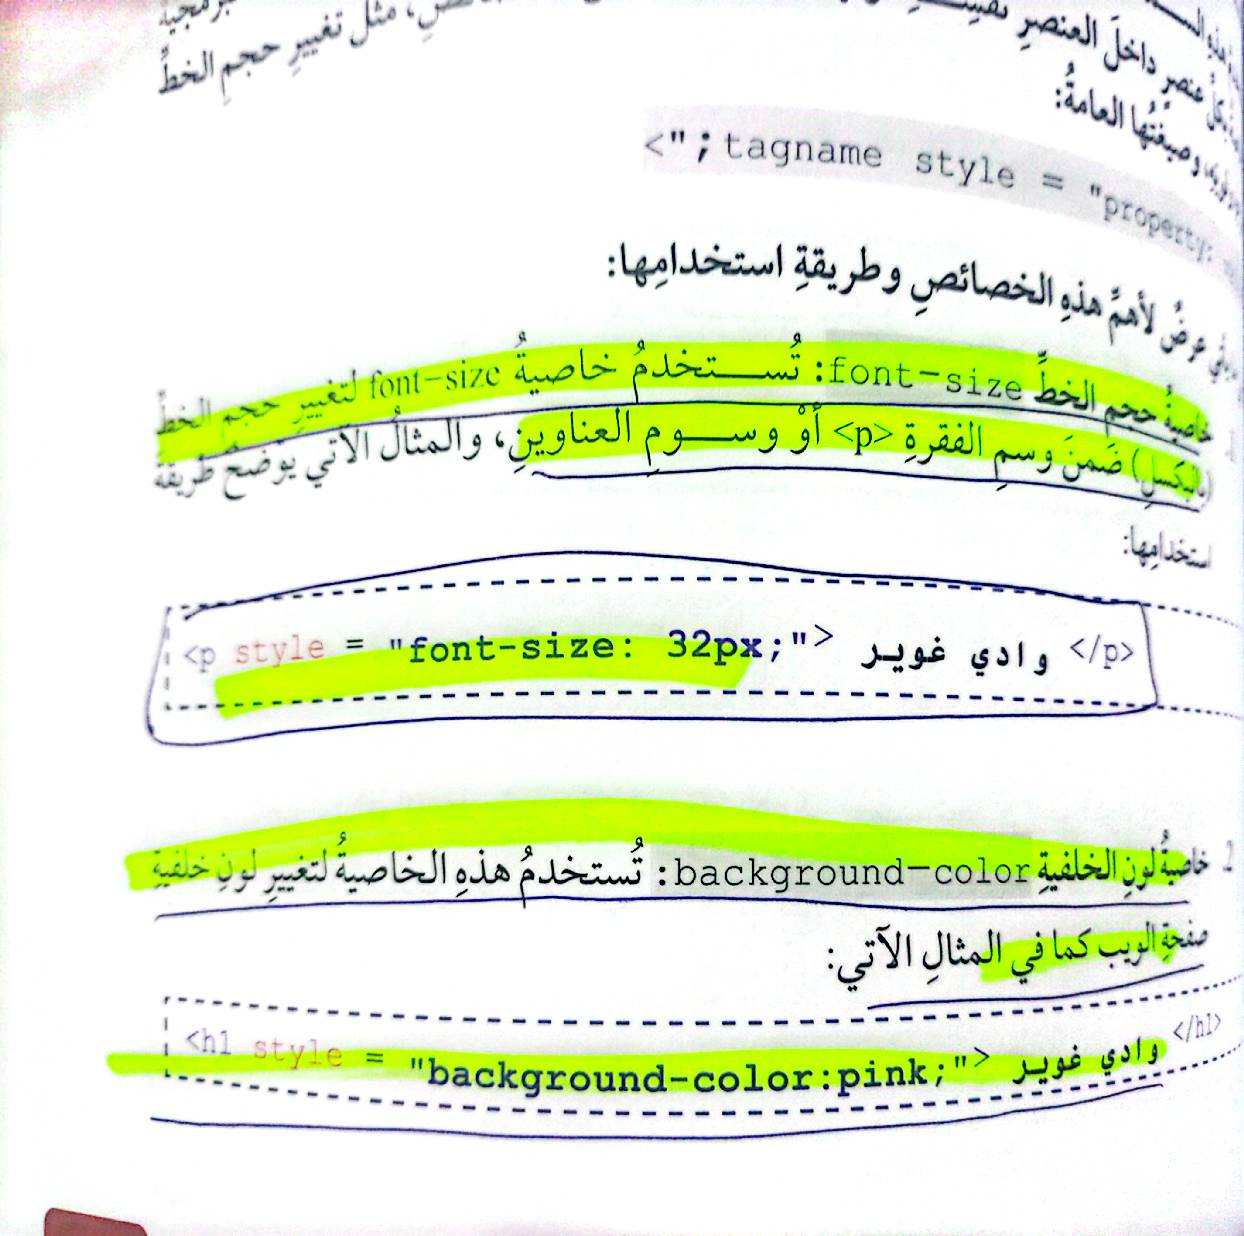 برمجية
كلُّ عنصرٍ داخلَ العنصرِ مثل تغييرِ حجمِ الخطِّ
وصيغتُها العامةُ:
<";tagname style = "property:
عرضٌ لأهمِّ هذهِ الخصائصِ وطريقةِ استخدامِها:
خاصيةُ حجمِ الخطِّ font-size: تُستخدمُ خاصيةُ font-size لتغييرِ حجمِ الخطِّ
(بالبكسلِ) ضَمنَ وسمِ الفقرةِ <p> أوْ وسومِ العناوينِ، والمثالُ الآتي يوضحُ طريقةَ
استخدامِها:
<p style = "font-size: 32px;"> وادي غوير </p>
2 خاصيةُ لونِ الخلفيةِ background-color: تُستخدمُ هذهِ الخاصيةُ لتغييرِ لونِ خلفيةِ
صفحةِ الويب كما في المثالِ الآتي:
<h1 style = "background-color:pink;"> وادي غوير </h1>